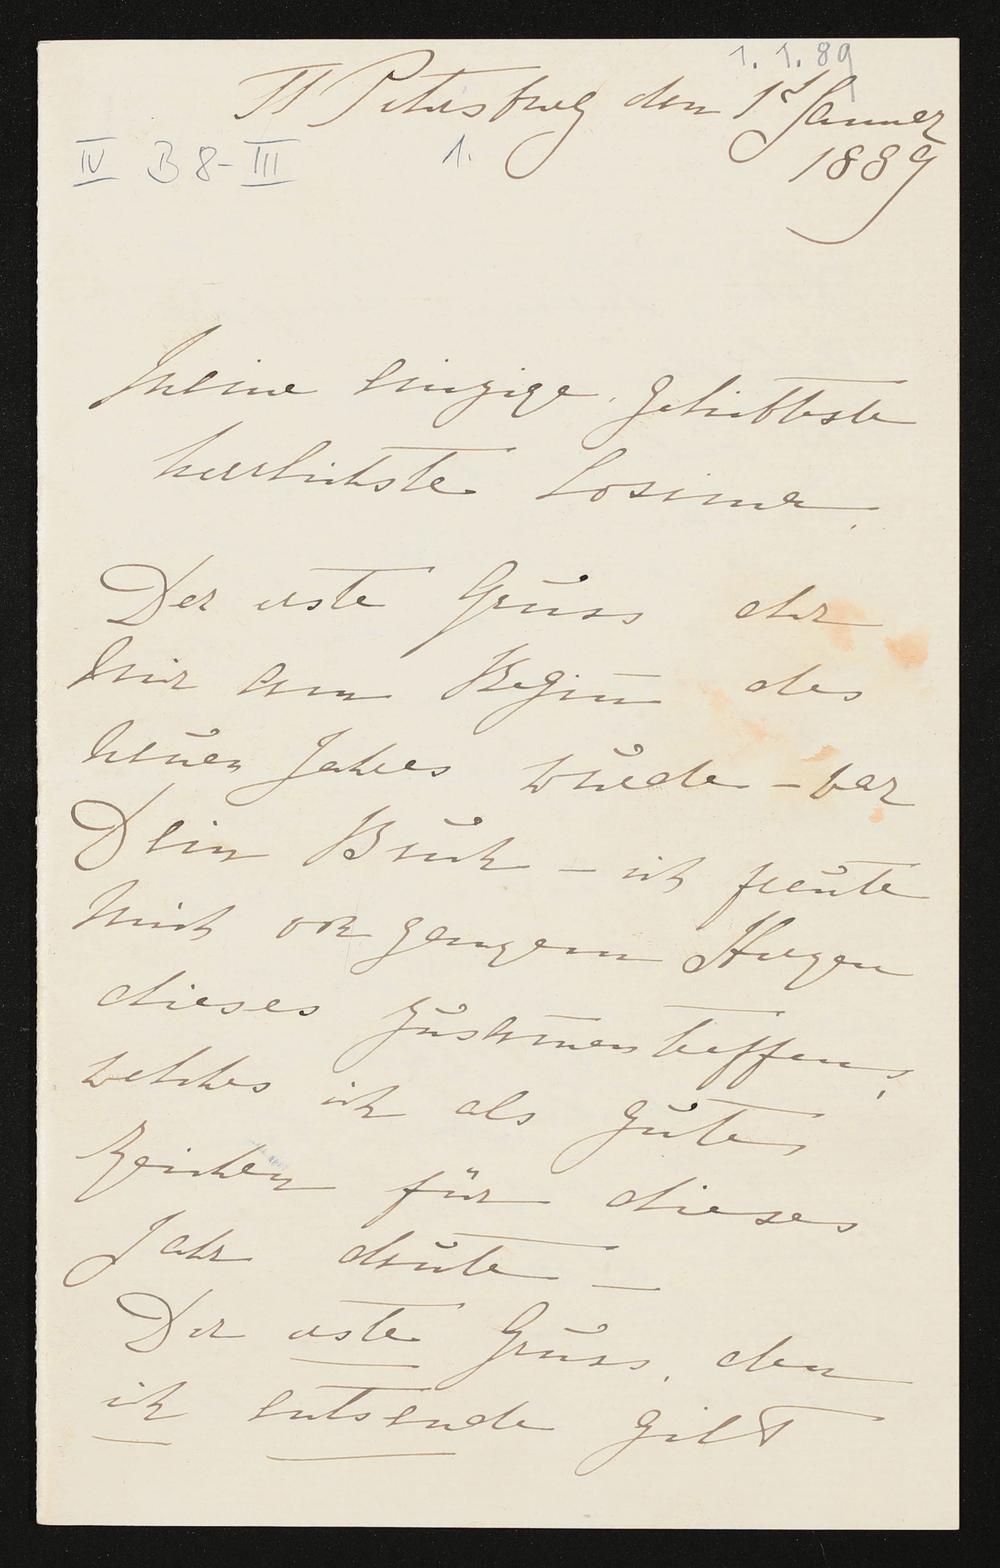 1. 1. 89
St Petersburg den 1t Januar
1889
IV B 8-III 1.
Meine einzige, geliebteste
herrlichste Cosima,
Der erste Gruss der
mir am Begin̅ des
neuen Jahres wurde – war
Dein Buch – ich freute
mich von ganzem Herzen
dieses Zusam̅entreffens,
welches ich als gutes
Zeichen für dieses
Jahr deute –
Der erste Gruss, den
ich entsende gilt